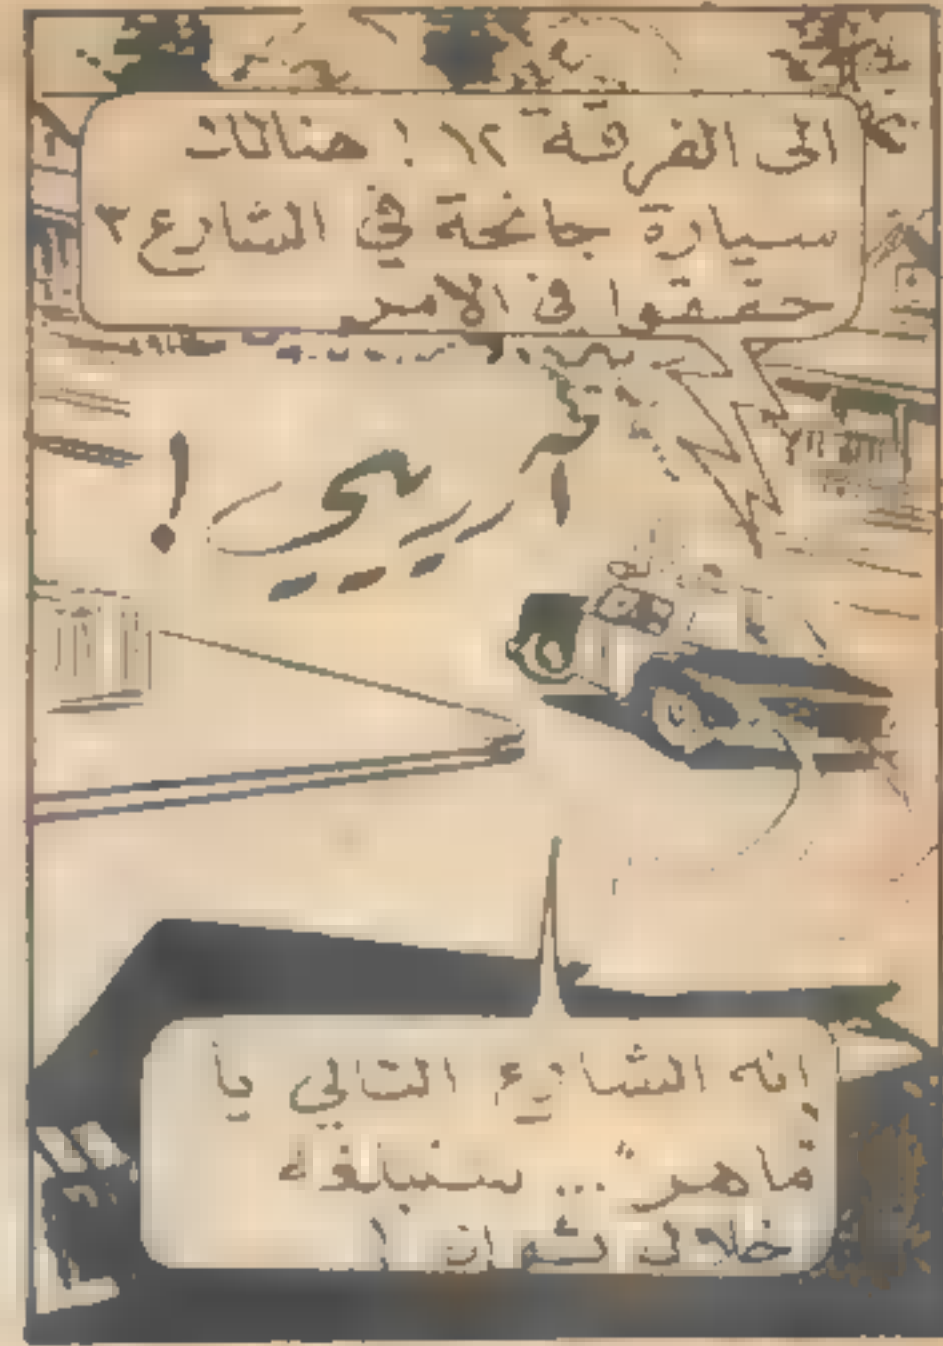 الى الفرقة ١٢ ! هنالك
سيارة جانحة في الشارع ٣
حققوا في الامر
إنه الشارع التالي يا
ماهر ... سنبلغه
خلال ثوان !